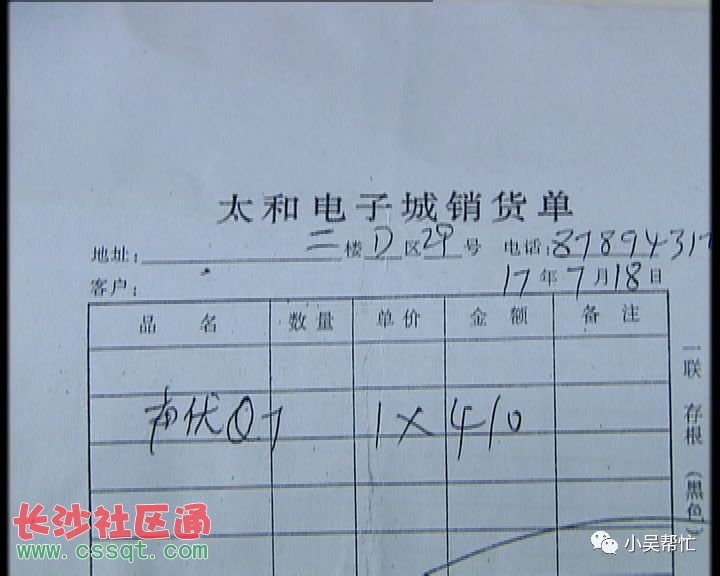 太和电子城销货单
地址：二楼D区29号 电话：87894317
客户： 17年7月18日
品名 数量 单价 金额 备注
声伏Q7 1×410
一联 存根（黑色）
长沙社区通
www.cssqt.com
小吴帮忙